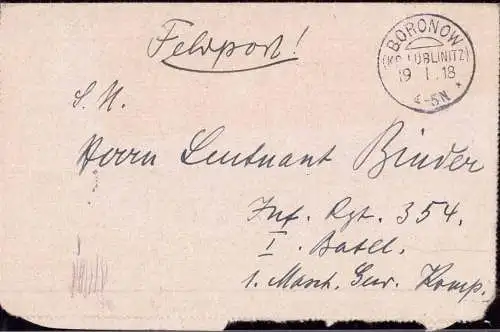 Feldpost!
BORONOW
(KR. LUBLINITZ)
19 1.18
4-5N *
S. H.
Herrn Leutnant Binder
Inf. Rgt. 354.
I. Batl.
1. Masch. Gew. Komp.